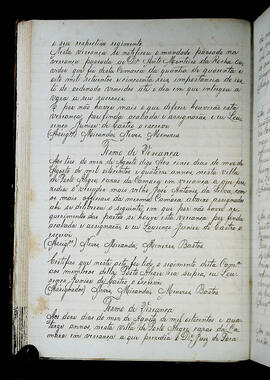 e seu respectivo regimento.
Nesta vereança se ratificou o mandado passado na
vereança passada ao Dr. Ant.º Monteiro da Rocha ou
vidor que foi desta Comarca da quantia de quarenta e
oito mil setecentos e cincoenta reis importancia do res
to do ordenado vencido até o dia em que entregou a
Vara ao seu sucessor.
E por não haver mais o que deferir houverão esta
vereança por finda acabada e assignarão e eu Lou
renço Junior de Castro o escrevi
(Assig.os) Miranda, Alvez, Menezes
Termo de Vereança
Aos tres de mez de Agosto digo Aos cinco dias do mez de
Agosto de mil setecentos e quatorze annos, nesta Villa
de Porto Alegre casas da Camara em vereança a que pre
sidio o Vereador mais velho José Antonio da Silva, com
os mais officiaes da mesma Camara abaixo assignados
ahi se deferirão o seguinte em que por não haver re
querimentos das partes se houve esta vereança por finda
acabada e assignarão e eu Lourenço Junior de Castro o
escrevi
(Assig.os) Alvez, Miranda, Menezes Bastos
Certifico que nesta acta foi lida e seguida dita Cam.ª
os membros della Porto Alegre era supra, eu Lou
renço Junior de Castro o Escrivão
(Assignados) Alvez, Miranda, Menezes Bastos
Termo de Vereança
Aos doze dias do mez de Agosto de mil setecentos e qua
torze annos nesta villa de Porto Alegre casas da Ca
mara em vereança a que presidio o Dr. Juiz de Fora